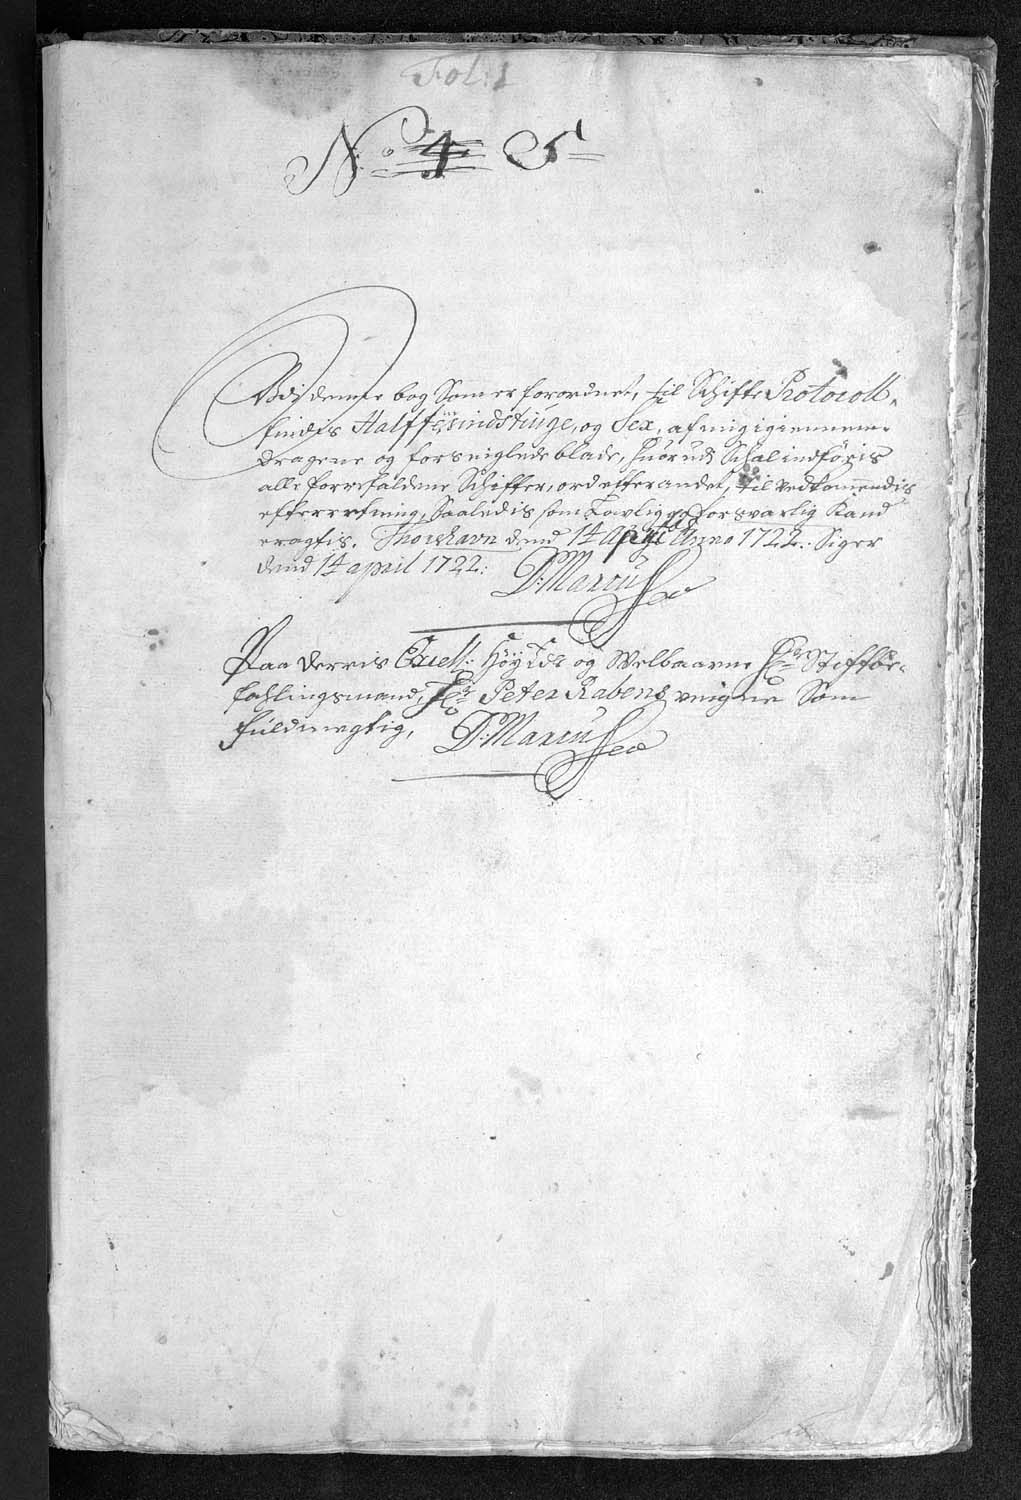 Fol: 1
No 4 5
Udj denne bog Som er forordnet, til Schiffte Protocoll,
findes Halffierindstiuge, og Sex, af mig igiennem
dragene og forseiglede blade, huorudj Schal indföris
alle forrefaldene Schiffter, ord efter andet, til vedkommendis
efterretning, Saaledis som Lovlig og forsvarlig Kand
eragtis. Thorshavn dend 14 April Anno 1722. Siger
dend 14 april 1722:
D: Marcussen
Paa Derris Excell: Höyædle og Welbaarne Hr Stifftbe-
fahlingsmand, Hr Peter Rabens veigne Som
fuldmegtig,
D: Marcussen